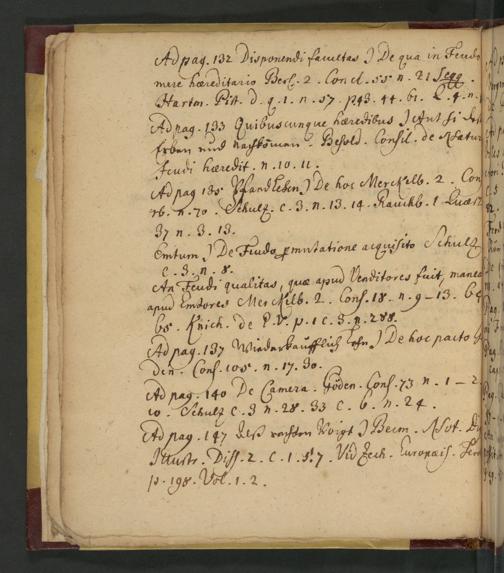 Ad pag. 132 Disponendi facultas ) De qua in Feudo
mere hæreditario Berl. 2. Concl. 55 n. 21 Seqq.
Hartm. Pist. d. q. 1. n. 57. 43. 44. 61. L. 4. n.
Ad pag. 133 Quibuscunque hæredibus )
Erben und nachkomen. Besold. Consil. de Natur
feudi hæredit. n. 10. 11.
Ad pag 135 Pfandlehen ) De hoc Merckelb. 2. Con
n. 70. Schulz. c. 3. n. 13. 14. Rauchb. 1 Quæst
37 n. 3. 13.
Emtum ) De Feudo permutatione acquisito Schulz
c. 3. n. 8.
An Feudi qualitas, quæ apud Venditores fuit, manea
apud Emtores Merckelb. 2. Cons. 18. n. 9-13.
Knich. de P. V. p. 1 c. 3. n. 288.
Ad pag. 137 Wiederkaufflich ) De hoc pacto
den. Cons. 105. n. 17. 30.
Ad pag. 140 De Camera. Göden. Cons. 73 n. 1-2
10. Schulz c. 3 n. 28. 33 c. 6. n. 24.
Ad pag. 147 Voigt ) Becm. Not. Di
Illustr. Diss. 2. c. 1. §. 7. Vid Zech. Europäis.
p. 198. Vol. 1. 2.